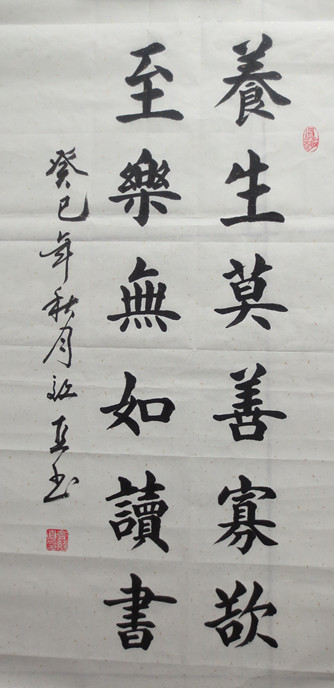 養生莫善寡欲
至樂無如讀書
癸巳年秋月真书